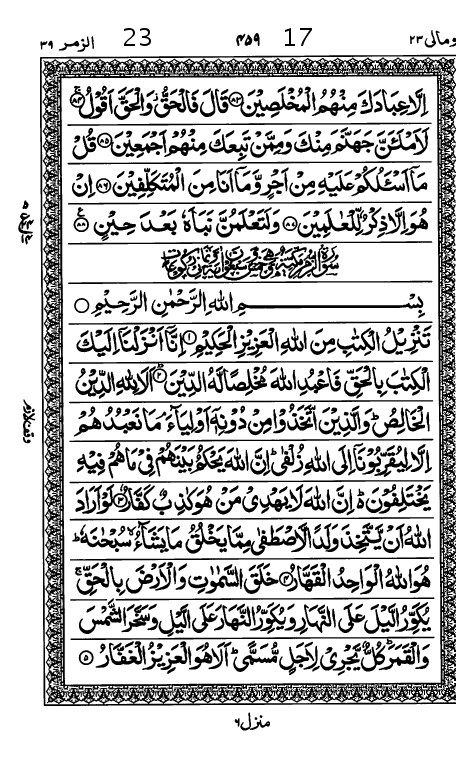 ومالی ۲۳ 17 ۴۵۹ 23 الزمر ۳۹
اِلَّا عِبَادَكَ مِنْهُمُ الْمُخْلَصِيْنَ ۸۳ قَالَ فَالْحَقُّ وَالْحَقَّ اَقُوْلُ ۸۴
لَاَمْلَئَنَّ جَهَنَّمَ مِنْكَ وَمِمَّنْ تَبِعَكَ مِنْهُمْ اَجْمَعِيْنَ ۸۵ قُلْ
مَاۤ اَسْئَلُكُمْ عَلَيْهِ مِنْ اَجْرٍ وَّمَاۤ اَنَا مِنَ الْمُتَكَلِّفِيْنَ ۸۶ اِنْ
هُوَ اِلَّا ذِكْرٌ لِّلْعٰلَمِيْنَ ۸۷ وَلَتَعْلَمُنَّ نَبَاَهٗ بَعْدَ حِيْنٍ ۸۸
بِسْمِ اللهِ الرَّحْمٰنِ الرَّحِيْمِ
تَنْزِيْلُ الْكِتٰبِ مِنَ اللهِ الْعَزِيْزِ الْحَكِيْمِ ۱ اِنَّاۤ اَنْزَلْنَاۤ اِلَيْكَ
الْكِتٰبَ بِالْحَقِّ فَاعْبُدِ اللهَ مُخْلِصًا لَّهُ الدِّيْنَ ۲ اَلَا لِلّٰهِ الدِّيْنُ
الْخَالِصُ ؕ وَالَّذِيْنَ اتَّخَذُوْا مِنْ دُوْنِهٖۤ اَوْلِيَآءَ ۘ مَا نَعْبُدُهُمْ
اِلَّا لِيُقَرِّبُوْنَاۤ اِلَى اللهِ زُلْفٰى ؕ اِنَّ اللهَ يَحْكُمُ بَيْنَهُمْ فِيْ مَا هُمْ فِيْهِ
يَخْتَلِفُوْنَ ؕ اِنَّ اللهَ لَا يَهْدِيْ مَنْ هُوَ كٰذِبٌ كَفَّارٌ ۳ لَوْ اَرَادَ
اللهُ اَنْ يَّتَّخِذَ وَلَدًا لَّاصْطَفٰى مِمَّا يَخْلُقُ مَا يَشَآءُ ۙ سُبْحٰنَهٗ ؕ
هُوَ اللهُ الْوَاحِدُ الْقَهَّارُ ۴ خَلَقَ السَّمٰوٰتِ وَالْاَرْضَ بِالْحَقِّ ۚ
يُكَوِّرُ الَّيْلَ عَلَى النَّهَارِ وَيُكَوِّرُ النَّهَارَ عَلَى الَّيْلِ وَسَخَّرَ الشَّمْسَ
وَالْقَمَرَ ؕ كُلٌّ يَّجْرِيْ لِاَجَلٍ مُّسَمًّى ؕ اَلَا هُوَ الْعَزِيْزُ الْغَفَّارُ ۵
منزل ۶